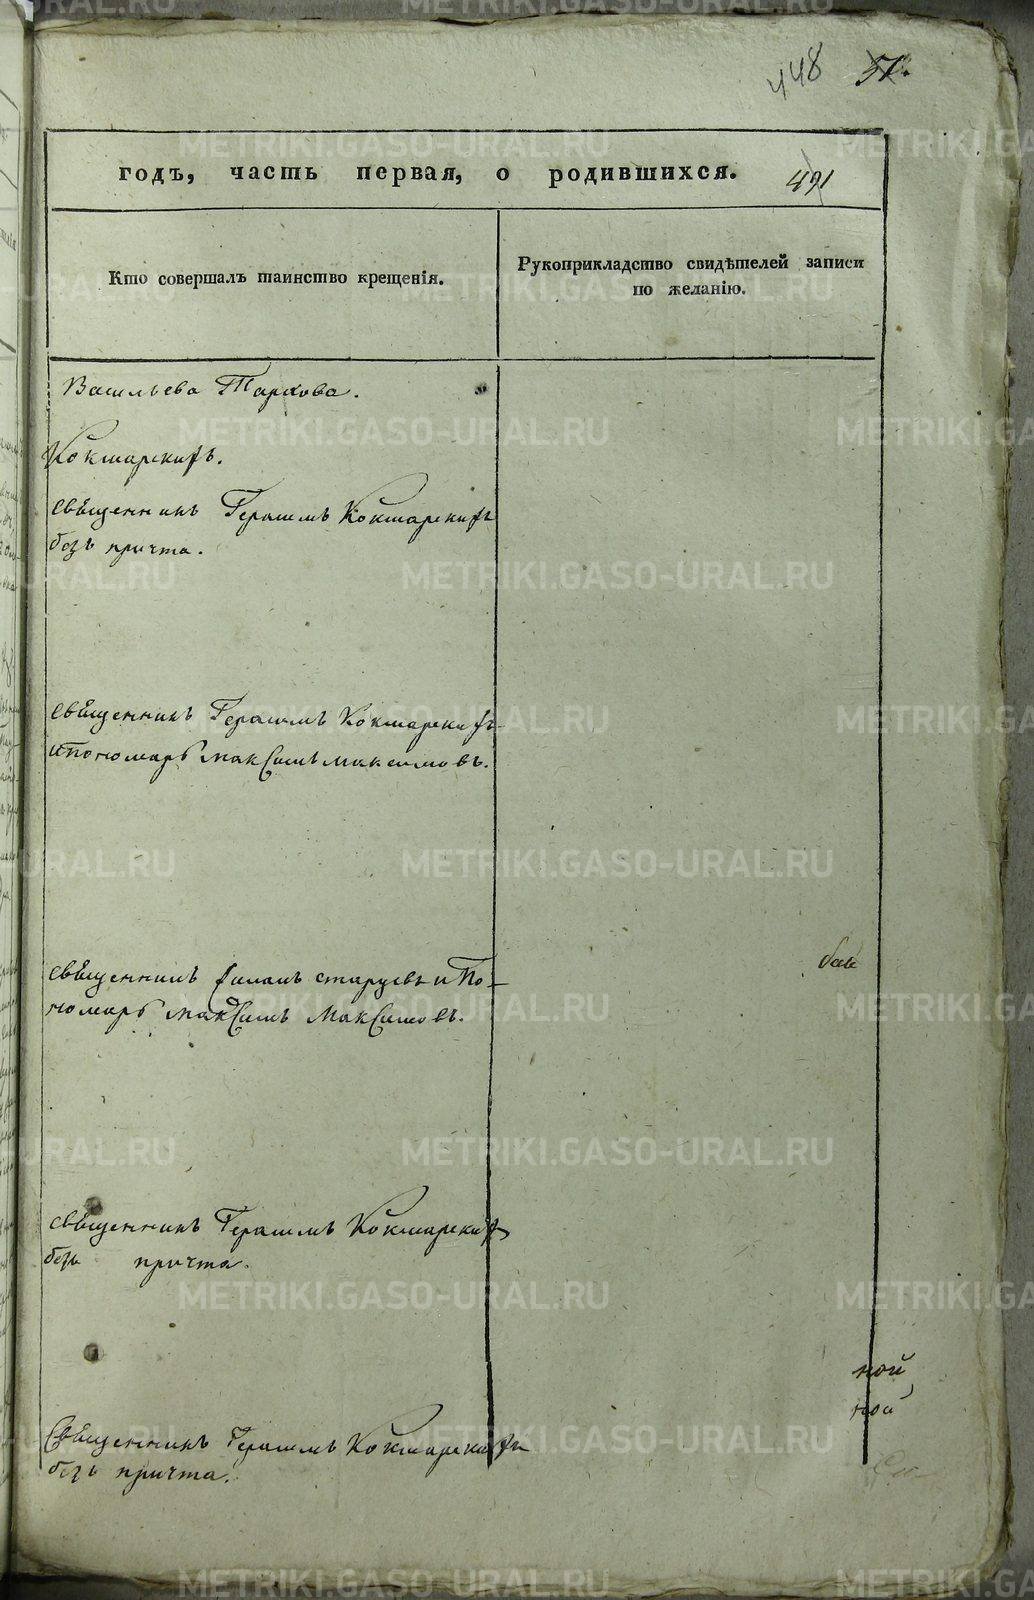 448 51.
годъ, часть первая, о родившихся. 491
Кто совершалъ таинство крещенія.
Рукоприкладство свидѣтелей записи
по желанію.
Васильева Таркова.
Кокшарскихъ.
священникъ Герасимъ Кокшарскихъ
безъ причта.
священникъ Герасимъ Кокшарскихъ
и пономарь Максимъ Максимовъ.
священникъ старцевъ и По-
номарь Максимъ Максимовъ.
священникъ Герасимъ Кокшарскихъ
безъ причта.
ной
ной
Священникъ Герасимъ Кокшарскихъ
безъ причта.
METRIKI.GASO-URAL.RU